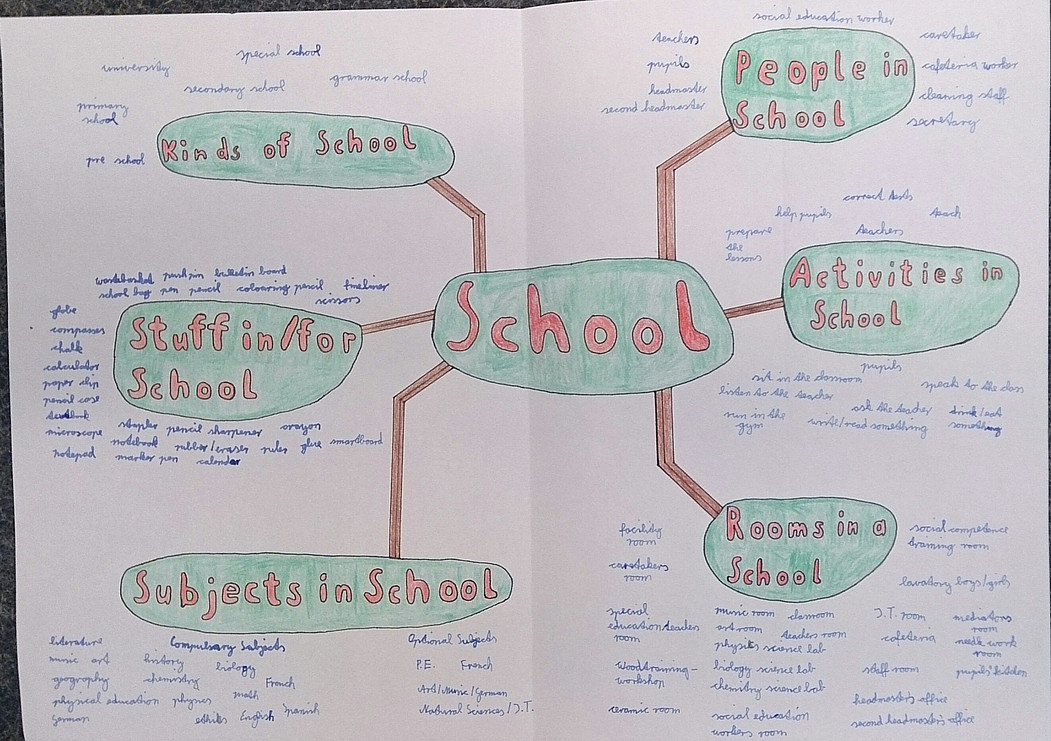 special school
university
grammar school
secondary school
primary
school
pre school
Kinds of School
social education worker
teachers
pupils
headmaster
second headmaster
People in
School
caretaker
cafeteria worker
cleaning staff
secretary
correct tests
help pupils
teach
prepare
the
lessons
teachers
Activities in
School
pupils
sit in the classroom
speak to the class
listen to the teacher
ask the teacher
drink/eat
something
run in the
gym
write/read something
School
pushpin bulletin board
school bag pen pencil colouring pencil fineliner
scissors
globe
compasses
chalk
calculator
paper clip
pencil case
textbook
microscope
notepad
Stuff in/for
School
stapler pencil sharpener crayon
notebook rubber/eraser ruler glue smartboard
marker pen calendar
Subjects in School
literature
music art
geography
physical education
German
Compulsary Subjects
history
biology
chemistry
French
math
physics
ethiks English Spanish
Optional Subjects
P.E. French
Art/Music/German
Natural Sciences/I.T.
Rooms in a
School
facility
room
caretakers
room
special
education teachers
room
woodtraining-
workshop
ceramic room
music room classroom
art room teachers room
physics science lab
biology science lab
chemitry science lab
social education
workers room
social competence
training room
lavatory boys/girls
I.T. room
cafeteria
staff room
headmaster's office
second headmaster's office
mediators
room
needle work
room
pupils' kitchen